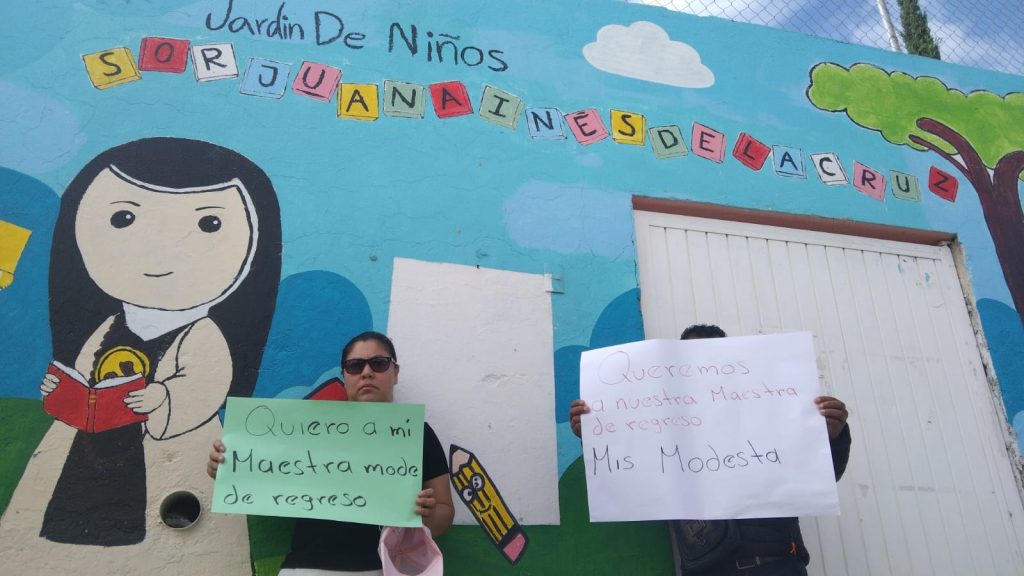 Jardin De Niños
SOR JUANA INÉS DE LA CRUZ
Quiero a mi
Maestra mode
de regreso
Queremos
a nuestra Maestra
de regreso
Mis Modesta